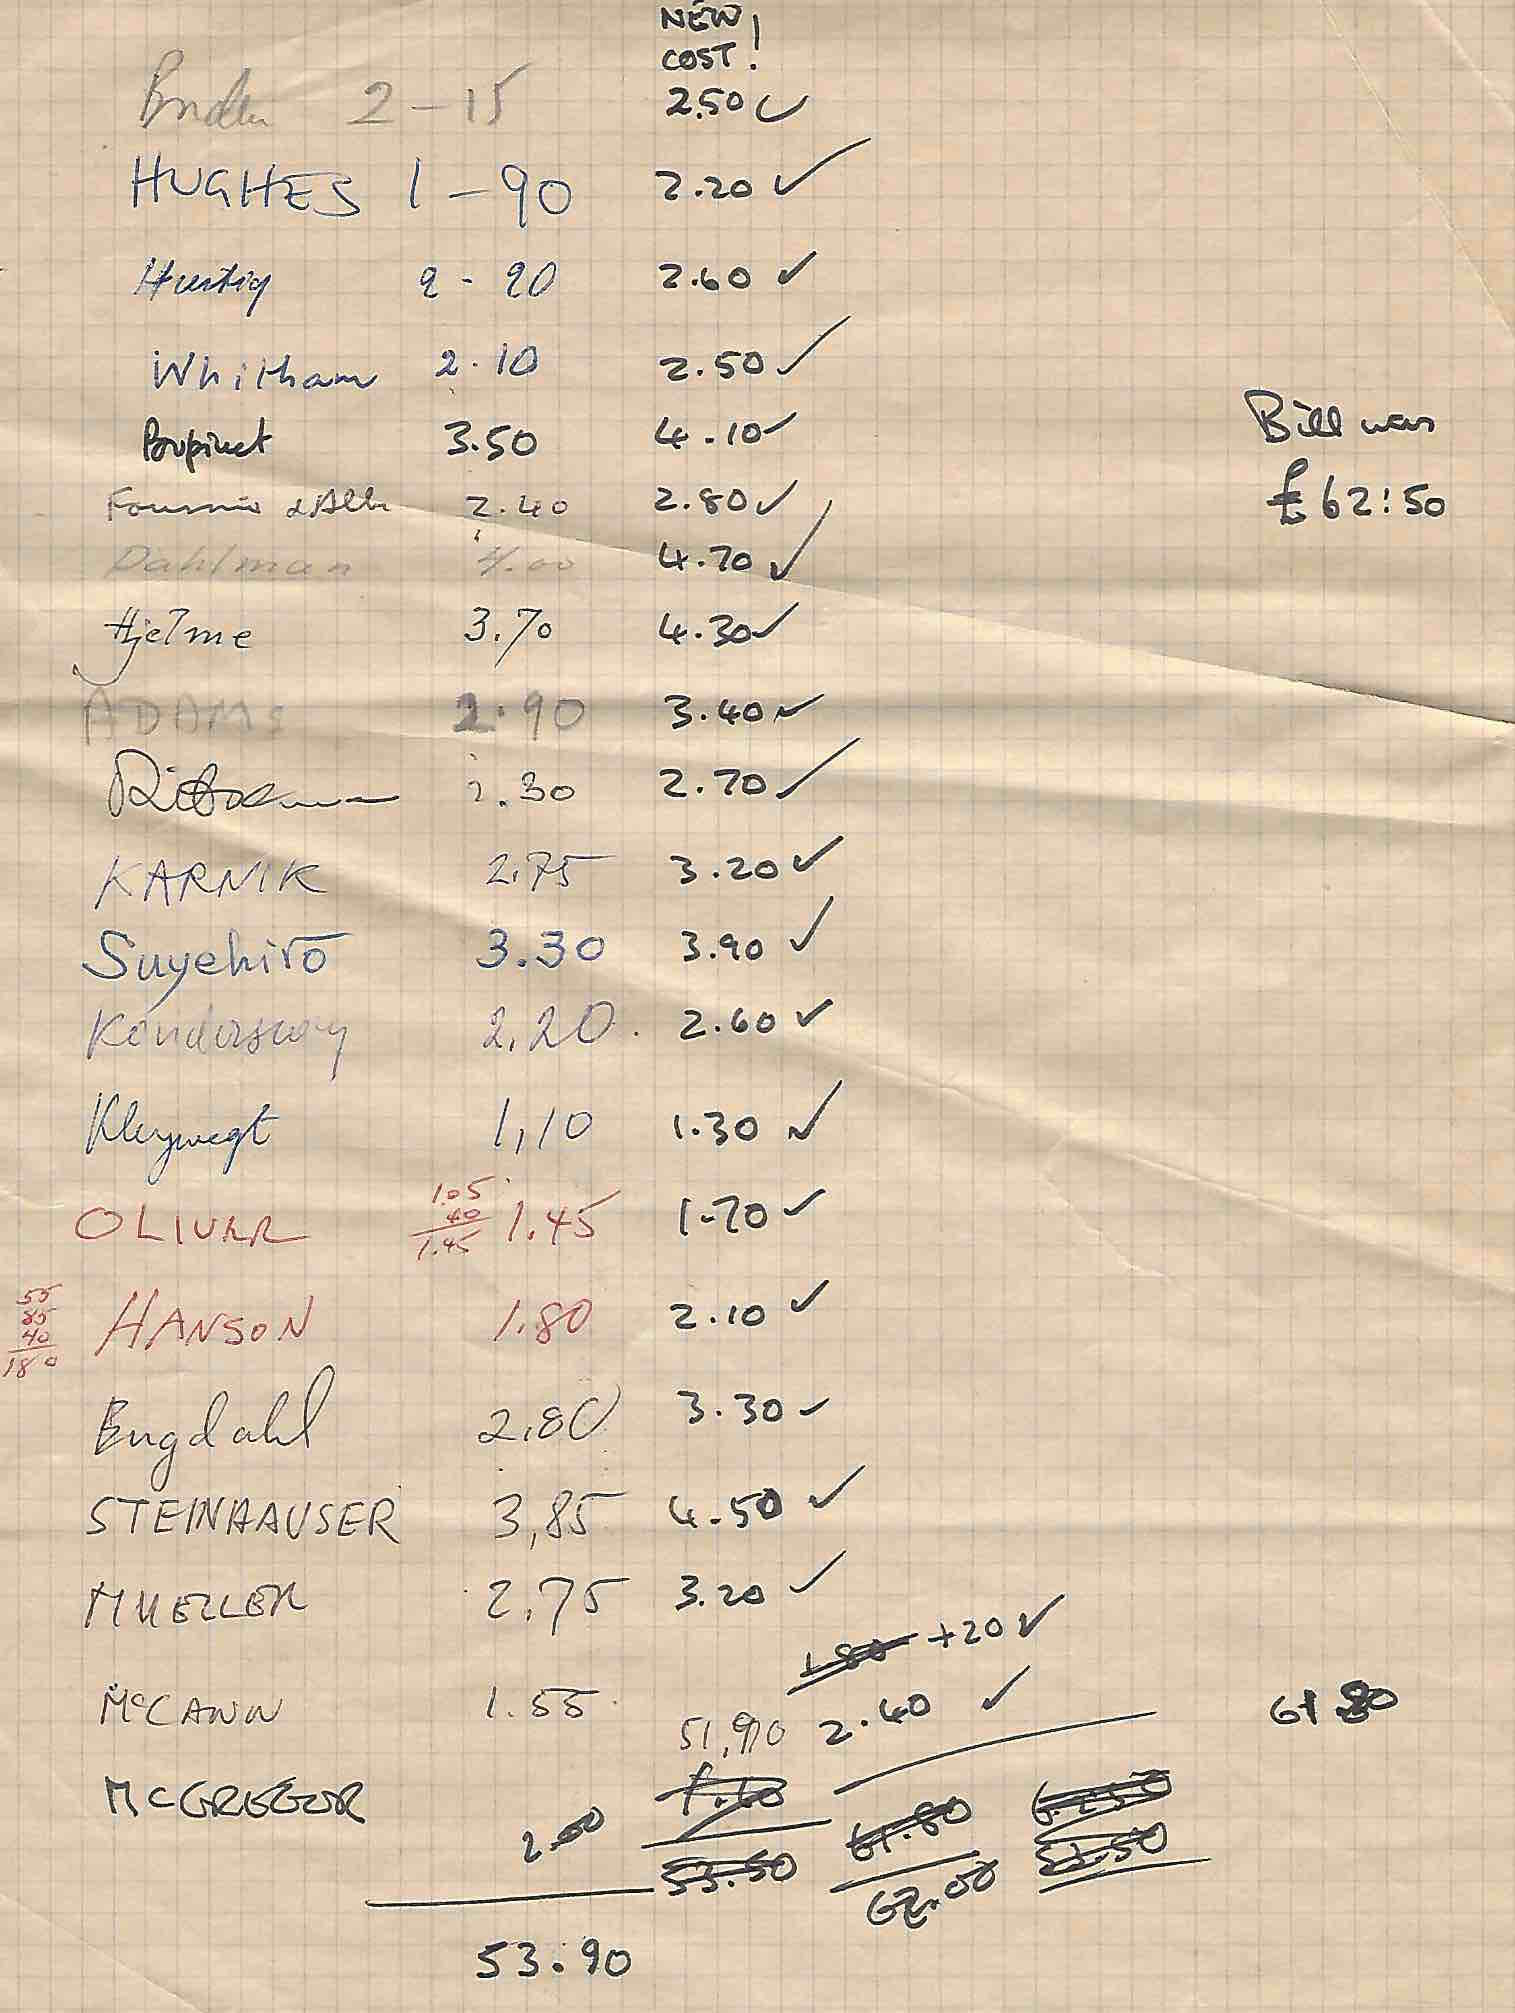 NEW
COST!
2-15 2.50 ✓
HUGHES 1-90 2.20 ✓
Hustig 2-20 2.60 ✓
Whitham 2.10 2.50 ✓
3.50 4.10 ✓
Bill was
Fournier d'Albe 2.40 2.80 ✓
£62:50
Dahlman 4.00 4.70 ✓
Hjelme 3.70 4.30 ✓
ADAMS 2.90 3.40 ✓
2.30 2.70 ✓
KARNIK 2.75 3.20 ✓
Suyehiro 3.30 3.90 ✓
2.20. 2.60 ✓
Kleywegt 1,10 1.30 ✓
1.05
40
1.45
OLIVER 1.45 1-70 ✓
55
85
40
180
HANSON 1.80 2.10 ✓
Bugdahl 2.80 3.30 ✓
STEINHAUSER 3,85 4.50 ✓
MUELLER 2.75 3.20 ✓
1.80 +20 ✓
McCANN 1.55 51,90 2.40 ✓ 61.80
MCGREGOR 2.00 1.60 61.80
53.50 62.00
53.90